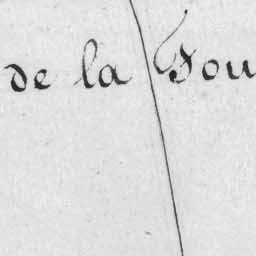 de la Fou